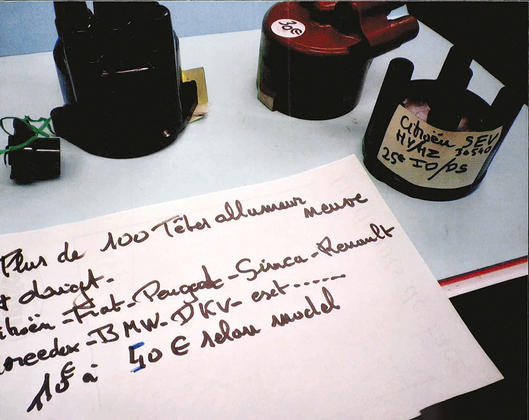 30€
Citroën SEV
HY/HZ 30540
25€ ID/DS
Plus de 100 Têtes allumeur neuve
doigt-
itroën-Fiat-Peugeot-Simca-Renault
ercedex-BMW-DKV-exet......
10€ à 50€ selon model